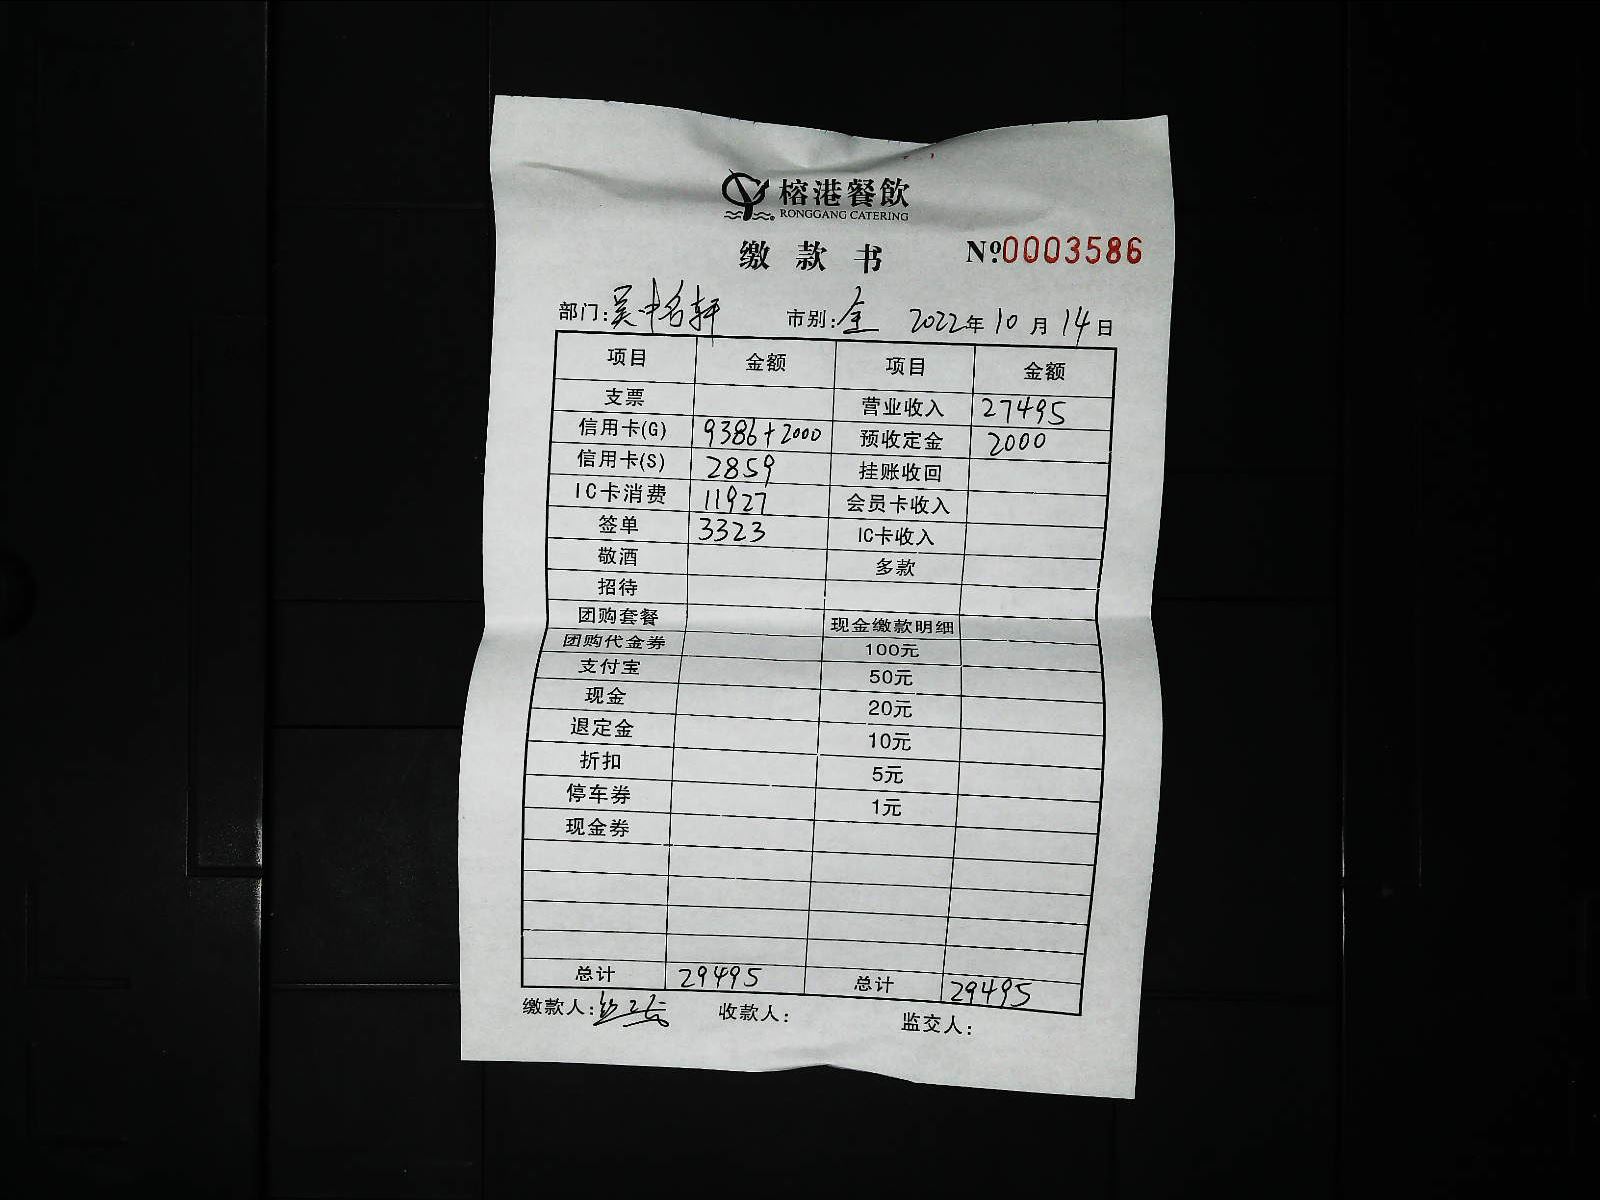 榕港餐飲
RONGGANG CATERING
缴款书 №:0003586
部门:吴中名轩 市别:全 2022年10月14日
项目 金额 项目 金额
支票 营业收入 27495
信用卡(G) 9386+2000 预收定金 2000
信用卡(S) 2859 挂账收回
IC卡消费 11927 会员卡收入
签单 3323 IC卡收入
敬酒 多款
招待
团购套餐 现金缴款明细
团购代金券 100元
支付宝 50元
现金 20元
退定金 10元
折扣 5元
停车券 1元
现金券
总计 29495 总计 29495
缴款人: 收款人: 监交人: